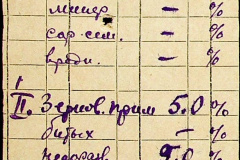 минер. — %
сор. сем. — %
вредн. — %
II. Зернов. прим 5.0 %
битых — %
недораз. 5.0 %